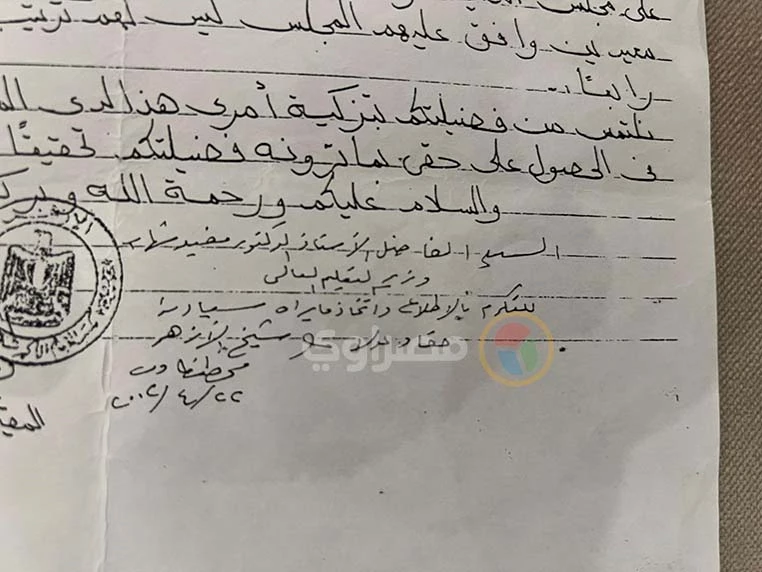 على مجلس
معيدين وافق عليهم المجلس ليس لهم ترتيب
رابعًا..
نلتمس من فضيلتكم بتزكية أمرى هذا لدى
فى الحصول على حقى بما ترونه فضيلتكم تحقيقًا
والسلام عليكم ورحمة الله وبرك
السيد الفاضل الأستاذ الدكتور مفيد شهاب
وزير التعليم العالى
للتكرم بالإطلاع واتخاذ ما يراه سيادته
حقا وعدلا شيخ الأزهر
مصراوي
محمد طنطاوى
٢٠٠٢/٤/٢٢